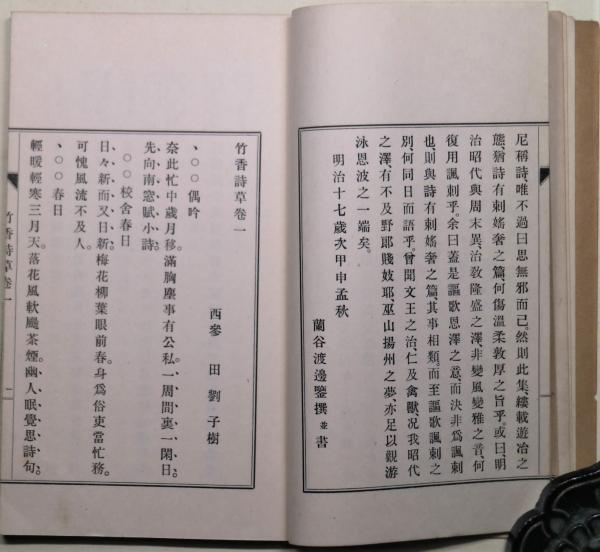 尼稱詩、唯不過曰思無邪而已。然則此集、縷載遊冶之
態、猶詩有刺婬奢之篇、何傷溫柔敦厚之旨乎。或曰、明
治昭代與周末異、治敎隆盛之澤、非變風變雅之音、何
復用諷刺乎。余曰、蓋是謳歌恩澤之意、而決非爲諷刺
也、則與詩有刺婬奢之篇、其事相類、而至謳歌諷刺之
別、何同日而語乎。曾聞文王之治、仁及禽獸、况我昭代
之澤、有不及野耶賤妓耶、巫山揚州之夢、亦足以觀游
泳恩波之一端矣。
明治十七歲次甲申孟秋
蘭谷渡邊鑒撰並書
竹香詩草卷一
西參 田劉子樹
、○○偶吟
奈此忙中歲月移。滿胸塵事有公私。一周間裏一閑日。
先向南窓賦小詩。
○○校舍春日
日々新而又日新。梅花柳葉眼前春。身爲俗吏當忙務。
可愧風流不及人。
、○○春日
輕暖輕寒三月天。落花風軟颺茶煙。幽人眠覺思詩句。
竹香詩草卷一
一